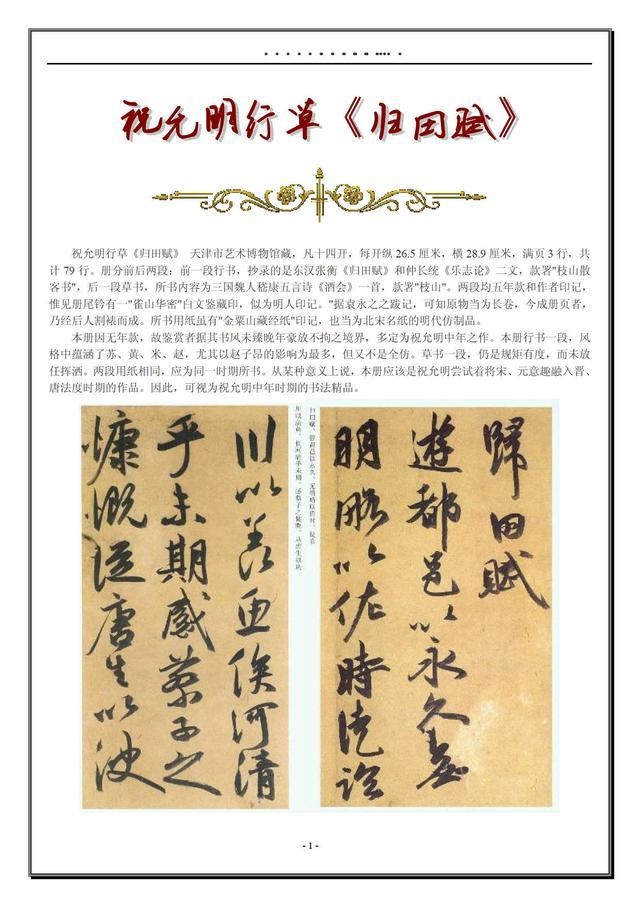 祝允明行草《归田赋》
祝允明行草《归田赋》 天津市艺术博物馆藏，凡十四开，每开纵 26.5 厘米，横 28.9 厘米，满页 3 行，共
计 79 行。册分前后两段；前一段行书，抄录的是东汉张衡《归田赋》和仲长统《乐志论》二文，款署"枝山散
客书"，后一段草书，所书内容为三国魏人嵇康五言诗《酒会》一首，款署"枝山"。两段均五年款和作者印记，
惟见册尾钤有一"雀山华密"白文鉴藏印，似为明人印记。"据袁永之之跋记，可知原物当为长卷，今成册页者，
乃经后人割裱而成。所书用纸虽有"金粟山藏经纸"印记，也当为北宋名纸的明代仿制品。
本册因无年款，故鉴赏者据其书风未臻晚年豪放不拘之境界，多定为祝允明中年之作。本册行书一段，风
格中蕴涵了苏、黄、米、赵，尤其以赵子昂的影响为最多，但又不是全仿。草书一段，仍是规矩有度，而未放
任挥洒。两段用纸相同，应为同一时期所书。从某种意义上说，本册应该是祝允明尝试着将宋、元意趣融入晋、
唐法度时期的作品。因此，可视为祝允明中年时期的书法精品。
歸田賦
遊都邑以永久無
明略以佐時徒臨
归田赋。游都邑以永久，无明略以佐时。徒临
川以羡鱼，俟河清乎未期。感蔡子之慷慨，从唐生以决
川以羨魚俟河清
乎未期感蔡子之
慷慨從唐生以決
- 1 -